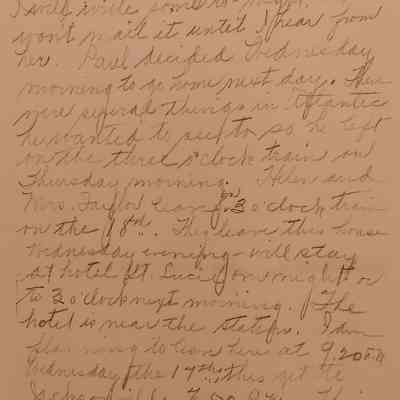 I will write some to-night.
won't mail it until I hear from
her. Paul decided Wednesday
morning to go home next day. There
were several things in Atlantic
he wanted to see to so he left
on the three o'clock train on
Thursday morning. Helen and
Mrs. Taylor leave on 3 o'clock train
on the 18th. They leave this house
Wednesday evening - will stay
at hotel St. Lucie on night or
to 3 o'clock next morning. The
hotel is near the station. I am
planning to leave here at 9.20 P.M
Wednesday the 17th this get to
Jacksonville